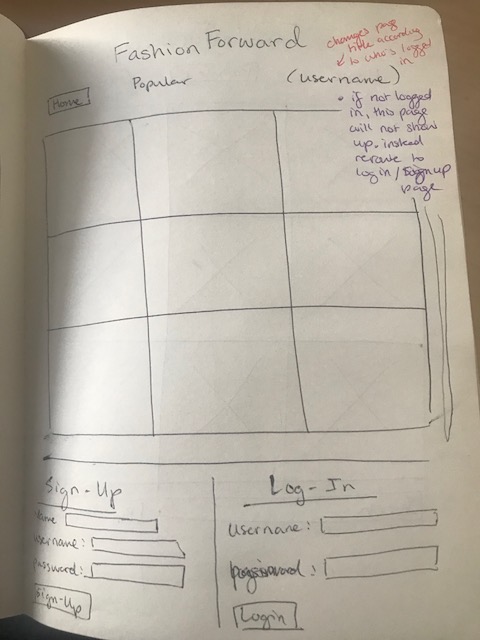 Fashion Forward
changes page
title according
to who's logged
in
Popular
(username)
Home
• if not logged
in, this page
will not show
up. instead
reroute to
login/signup
page
Sign-Up
name
username:
password:
Sign-Up
Log-In
username:
password:
Login